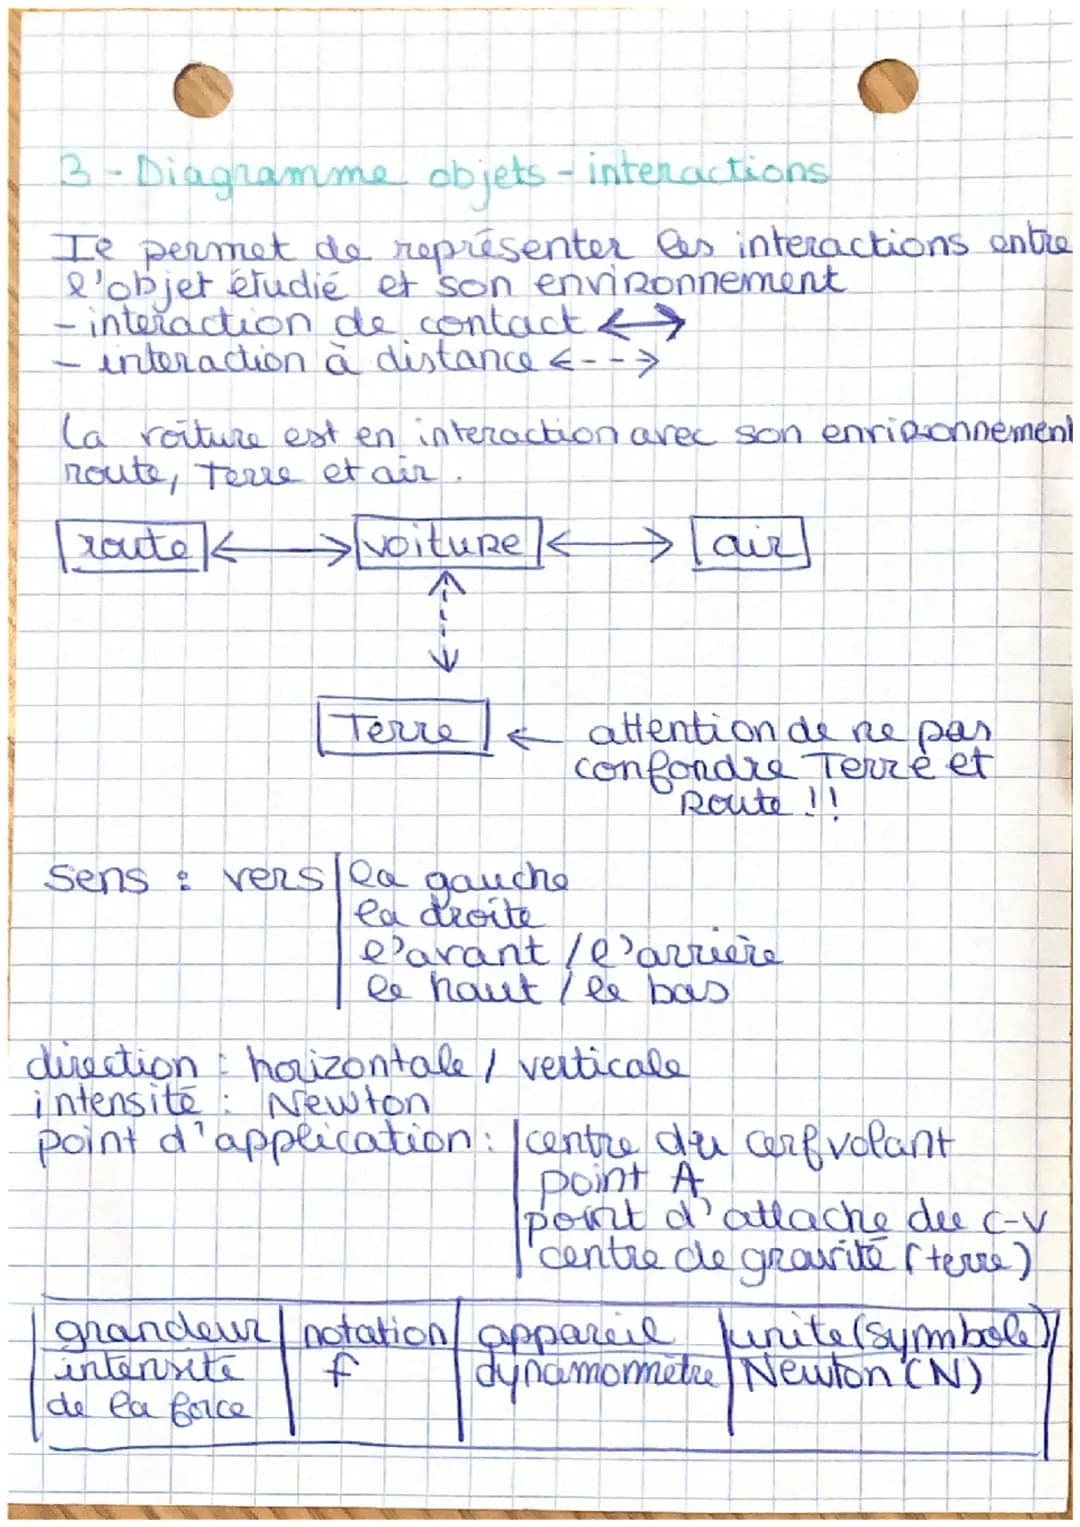 3 - Diagramme objets - interactions
Ie permet de représenter les interactions entre
l'objet étudié et son environnement
- interaction de contact <->
- interaction à distance <-->
La voiture est en interaction avec son environnement
route, Terre et air.
route <-> voiture <-> air
Terre ← attention de ne pas
confondre Terre et
Route !!
sens : vers la gauche
la droite
l'avant / l'arrière
le haut / le bas
direction : horizontale / verticale
intensité : Newton
point d'application : centre du cerf volant
point A
point d'attache du c-v
centre de gravité (terre)
grandeur notation appareil unite (symbole)
intensité f dynamomètre Newton (N)
de la force